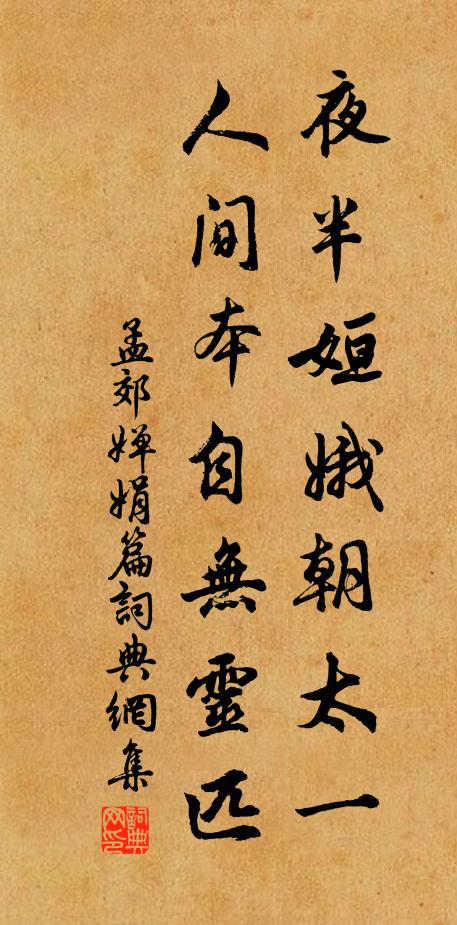 夜半姮娥朝太一
人間本自無靈匹
孟郊嬋娟篇詞典網集
詞典网印